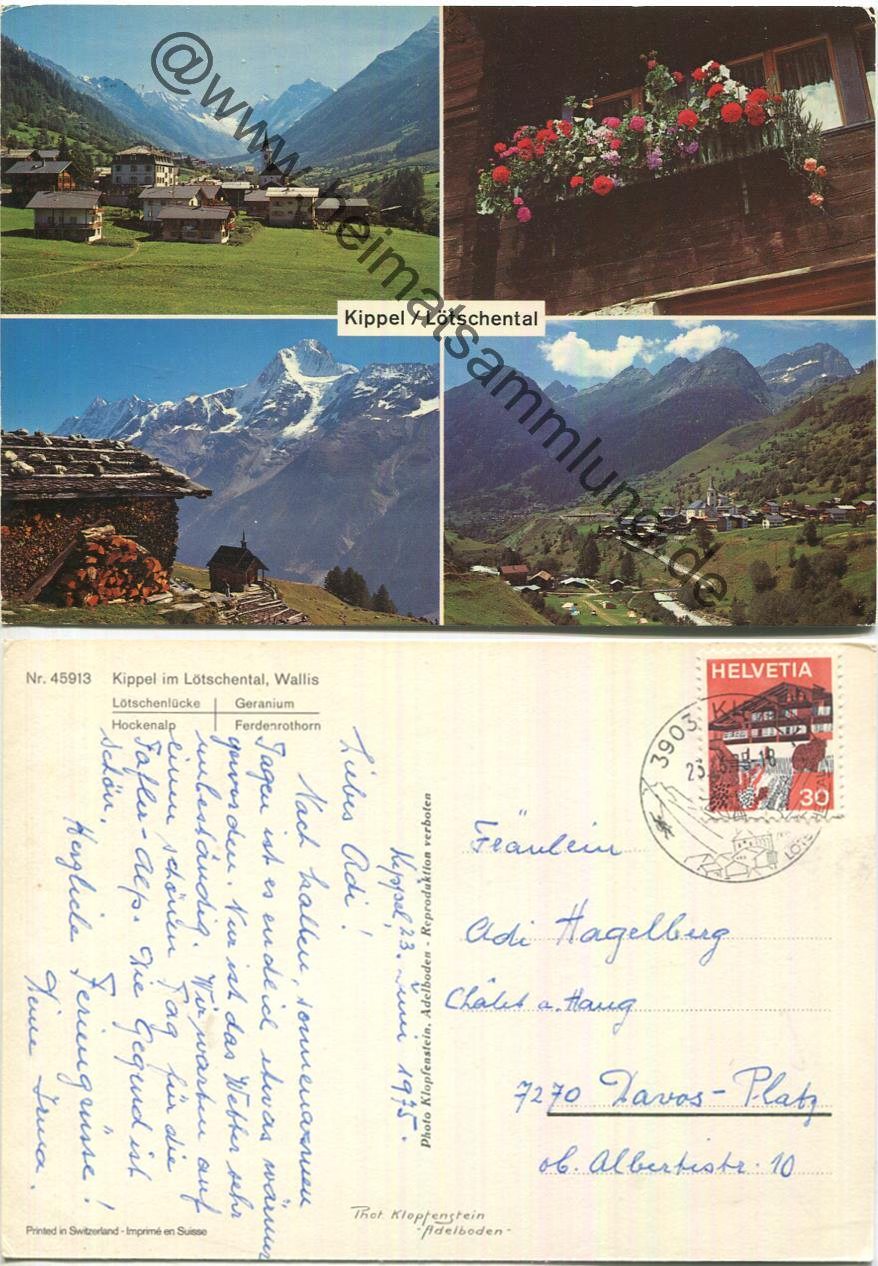 Kippel / Lötschental
@www.heimatsammlung.de
Nr. 45913 Kippel im Lötschental, Wallis
Lötschenlücke Geranium
Hockenalp Ferdenrothorn
Kippel, 23. Juni 1975.
Liebes Adi!
Nach kalten, sonnenarmen
Tagen ist es endlich etwas wärmer
geworden. Nur ist das Wetter sehr
unbeständig. Wir warten auf
einen schönen Tag für die
Fafler-Alp. Die Gegend ist
schön.
Herzliche Feriengrüsse!
Deine Irma.
Photo Klopfenstein, Adelboden - Reproduktion verboten
Printed in Switzerland - Imprimé en Suisse
Phot. Klopfenstein
-Adelboden-
HELVETIA
30
3903
Fräulein
Adi Hagelberg
Châlet a. Haug
7270 Davos-Platz
ob. Albertistr. 10